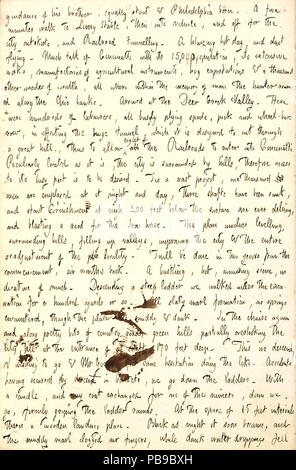 guidance of his brother, equally about a Philadelphia born. A five
minutes walk to Lime Street, then into vehicle, and off for the
city outskirts, and Railroad Tunnelling. A blazing hot day, and dust
flying. Much talk of Cincinnati with its 15,000 population, its extensive
works, manufactories of agricultural instruments, hog exportations & a thousand
other modes of wealth, all risen within the memory of man the hunter roam-
ed along the Ohio banks. Arrived at the Deer Creek Valley. Here
were hundreds of labourers, all busily plying spade, pick and wheel-bar-
row, in effecting the huge tunnel, which it is designed to cut through
a great hill. Thus to allow eight Railroads to enter into Cincinnati.
Peculiarly located as it is, the city is surrounded by hills, therefore access
to its busy part is to be desired. 'Tis a vast project, one thousand
men are employed at it night and day, three shafts have been sunk,
and stout excavators at each 200 feet below the surface are ever delving,
and blasting a road for the iron horse. The plan involves levelling
surrounding hills, filling up valleys, improving the city & the entire
readjustment of the locality. 'Twill be done in two years from the
commencement, six months back. A bustling, hot, sounding scene, in-
dicative of much. Descending a step ladder we walked under the exca-
vation for a hundred yards or so. slaty marl formation, no springs
encountered, though the place muddy & dank. In the chaise again
and along pretty bits of country, green hills partially overlooking the
city, till at the entrance of shaft 170 feet deep. This we descend
wanting to go & Mr hesitation doing the like. Accidents
having occurred by in buckets, we go down the ladders. With
candle, and coat exchanged for one of the miners, down we
go, firmly griping the ladder rounds. At the space of 15 feet intervals
there's a wooden landing place. Black as night it soon became, and
the muddy marl clogged our fingers, while dank water droppings fell